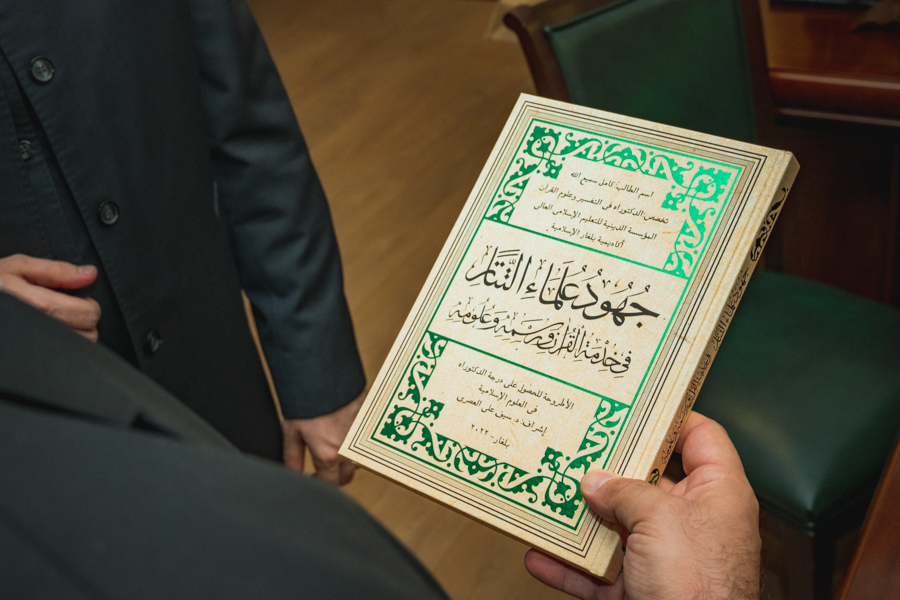 اسم الطالب: كامل سميع الله
تخصص: الدكتوراه في التفسير وعلوم القرآن
المؤسسة الدينية للتعليم الإسلامي العالي
أكاديمية بلغار الإسلامية
جُهُودُ عُلَمَاءِ التَّتَار
فِي خِدْمَةِ القُرْآنِ وَرَسْمِهِ وَعُلُومِهِ
الأطروحة للحصول على درجة الدكتوراه
في العلوم الإسلامية
إشراف: د. سيف علي العصري
بلغار-٢٠٢٢